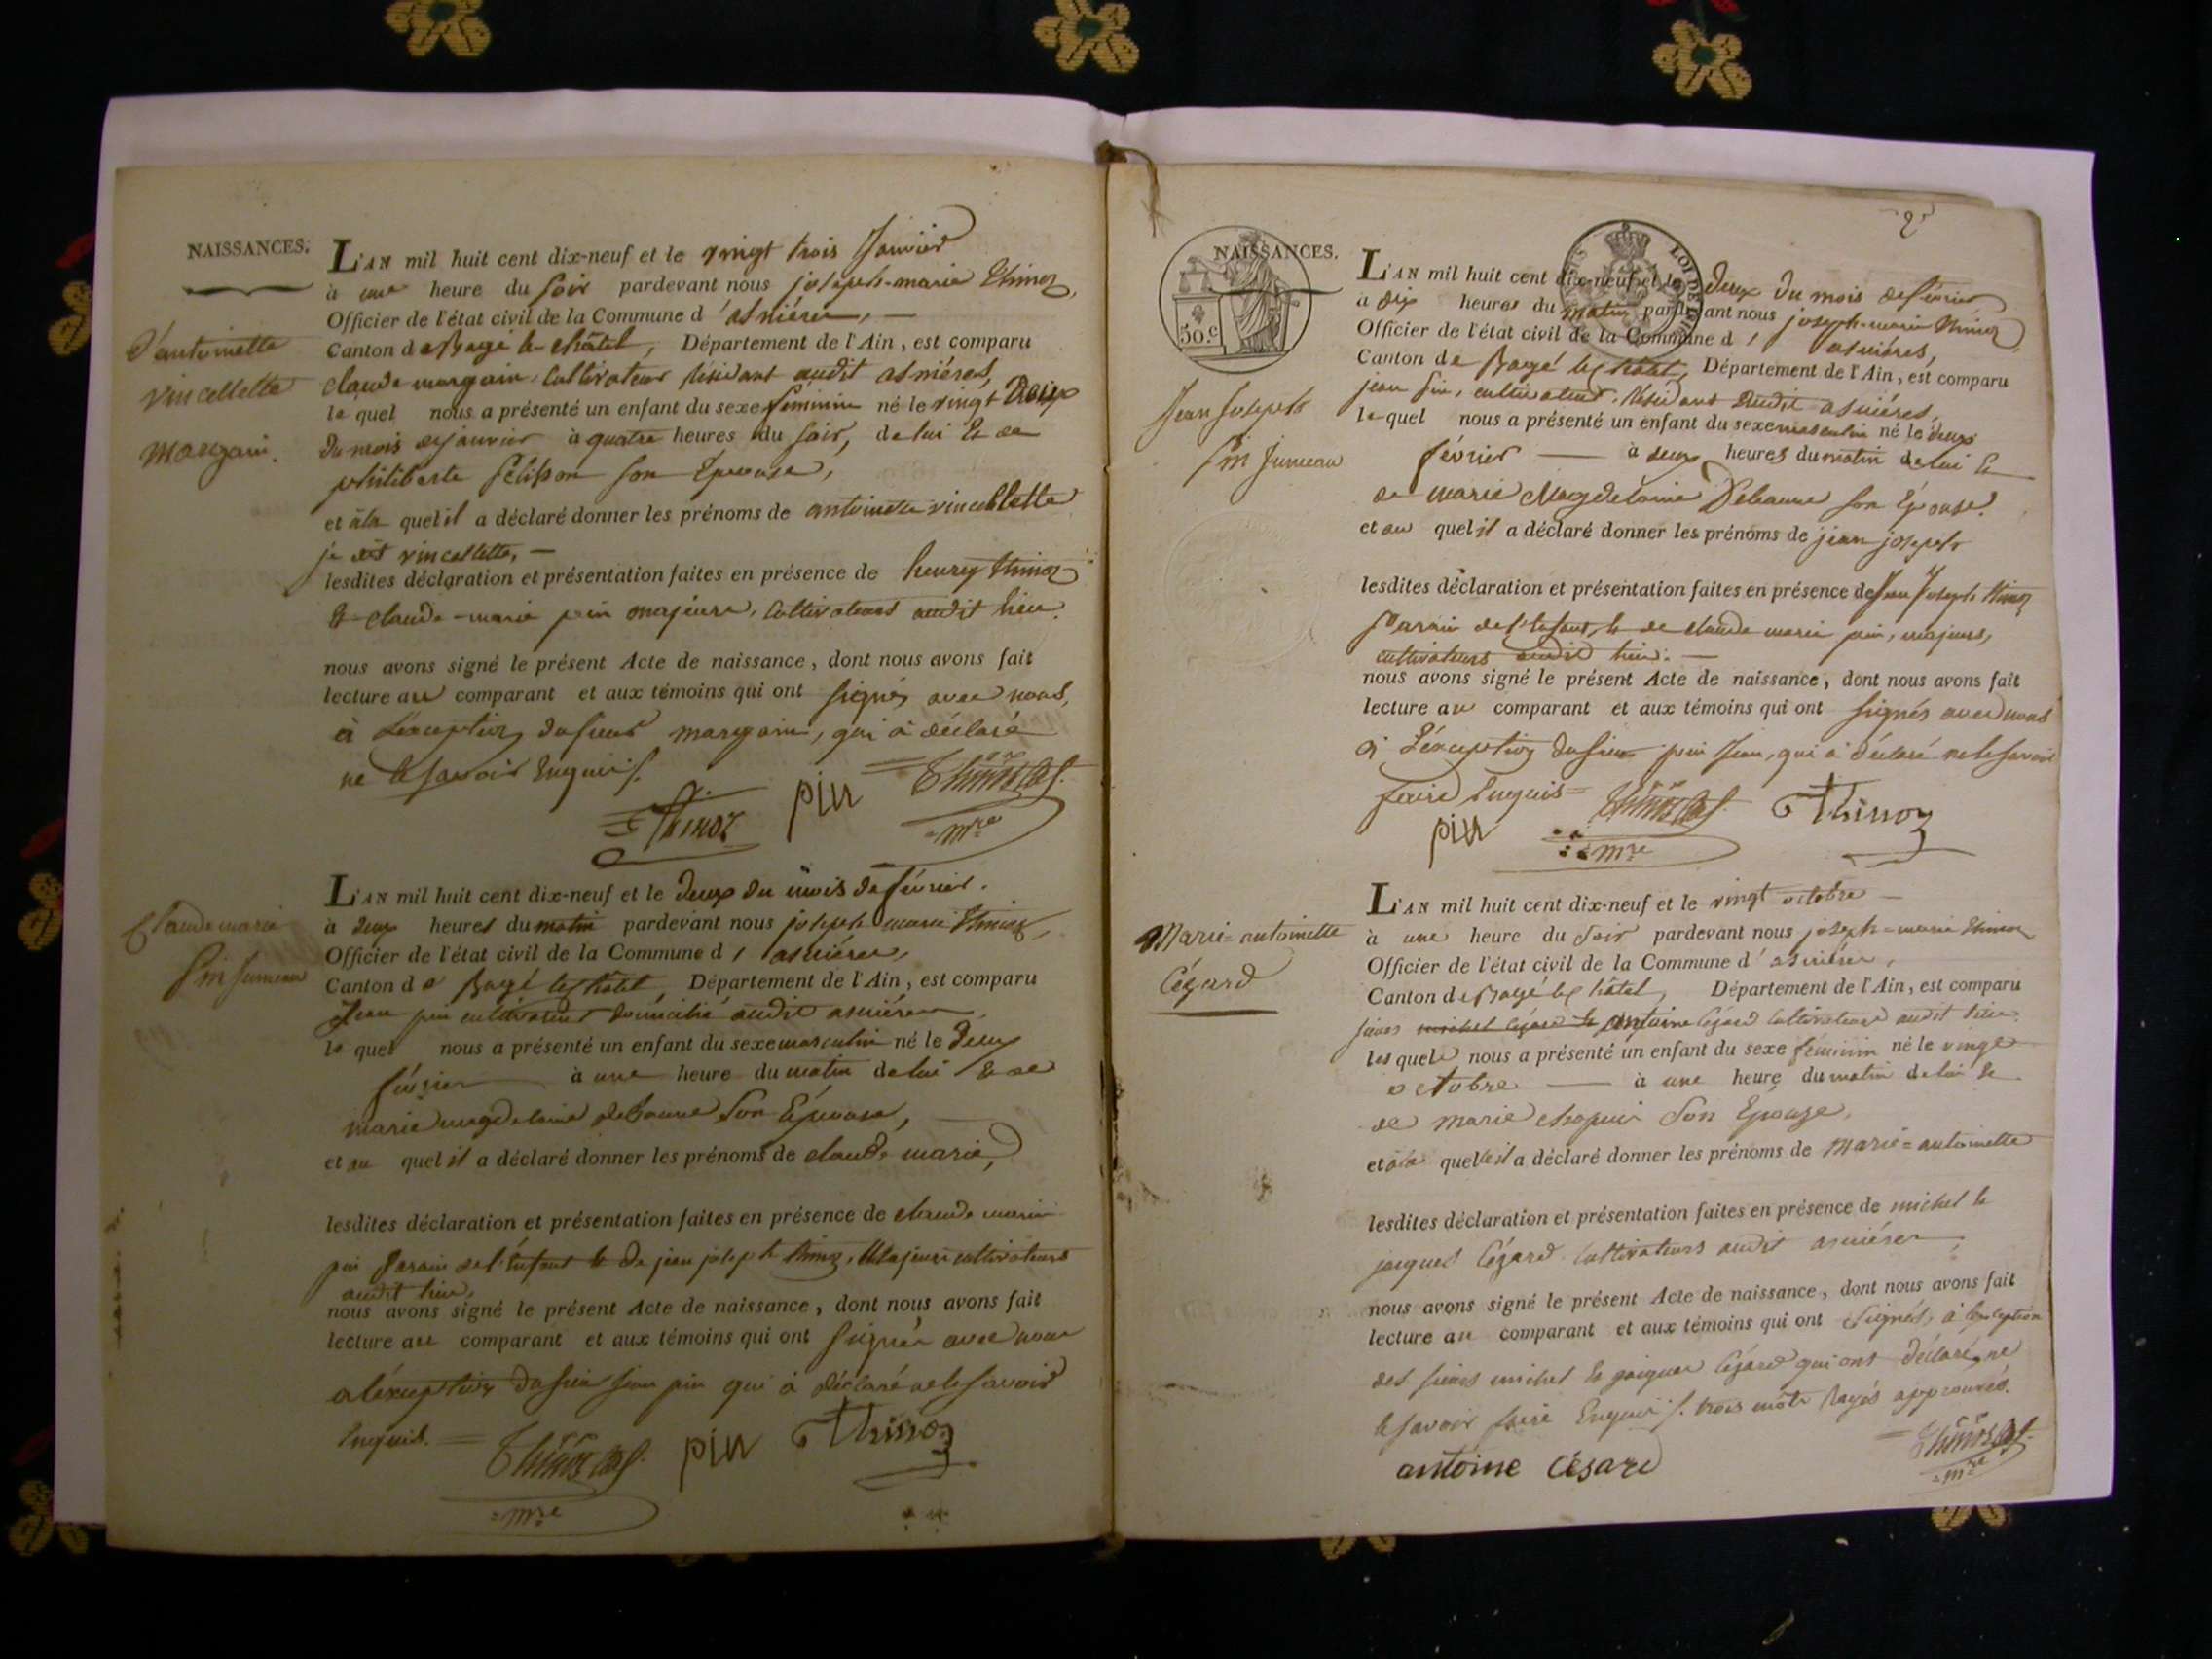 NAISSANCES.
L'AN mil huit cent dix-neuf et le vingt trois Janvier
à une heure du soir pardevant nous joseph-marie thinoz,
Officier de l'état civil de la Commune d'asniéres,
Canton de Bagé le-châtel, Département de l'Ain, est comparu
claude margain cultivateur résidant audit asniéres,
le quel nous a présenté un enfant du sexe féminin né le vingt Deux
du mois de janvier à quatre heures du soir, de lui & de
philiberte son Epouse,
et à la quel il a déclaré donner les prénoms de antoinette vincellette
je dit vincellette,
lesdites déclaration et présentation faites en présence de henry thinoz
& claude-marie pin majeurs, cultivateurs audit lieu.
nous avons signé le présent Acte de naissance, dont nous avons fait
lecture au comparant et aux témoins qui ont signés avec nous,
à L'exception du sieur margain, qui à déclaré
ne le savoir Enquis.
d'antoinette
vincellette
margain.
Thinoz
pin
mre
L'AN mil huit cent dix-neuf et le deux du mois de février.
à deux heures du matin pardevant nous joseph marie thinoz,
Officier de l'état civil de la Commune d'asniéres,
Canton de Bagé le châtel, Département de l'Ain, est comparu
Jean pin cultivateur domicilié audit asniéres
le quel nous a présenté un enfant du sexe masculin né le deux
février à une heure du matin de lui & de
marie magdelaine debaune son Epouse,
et au quel il a déclaré donner les prénoms de claude marie,
lesdites déclaration et présentation faites en présence de claude marie
pin parain de l'enfant & de jean joseph thinoz, Majeurs cultivateurs
audit lieu.
nous avons signé le présent Acte de naissance, dont nous avons fait
lecture au comparant et aux témoins qui ont signés avec nous
a l'exception du sieur jean pin qui à déclaré ne le savoir
Enquis.
Claude marie
pin jumeau
pin
Thinoz
mre
2
NAISSANCES.
50.c
LOI DE 1816
L'AN mil huit cent dix-neuf et le Deux du mois de février
à dix heures du matin pardevant nous joseph-marie thinoz,
Officier de l'état civil de la Commune d'asniéres,
Canton de Bagé le châtel, Département de l'Ain, est comparu
jean pin, cultivateur, résidant audit asniéres,
le quel nous a présenté un enfant du sexe masculin né le deux
février à deux heures du matin de lui &
de marie Magdelaine Debaune son Epouse.
et au quel il a déclaré donner les prénoms de jean joseph
lesdites déclaration et présentation faites en présence de Jean Joseph thinoz
Parain de l'enfant, & de claude marie pin, majeurs,
cultivateurs audit lieu.
nous avons signé le présent Acte de naissance, dont nous avons fait
lecture au comparant et aux témoins qui ont signés avec nous
à L'exception du sieur pin Jean, qui à déclaré ne le savoir
faire Enquis
Jean Joseph
pin jumeau
pin
Thinoz
mre
L'AN mil huit cent dix-neuf et le vingt octobre
à une heure du soir pardevant nous joseph-marie thinoz
Officier de l'état civil de la Commune d'asniéres,
Canton de Bagé le châtel, Département de l'Ain, est comparu
michel Cézard & antoine Cézard cultivateurs audit lieu.
les quels nous a présenté un enfant du sexe féminin né le vingt
octobre à une heure du matin de lui &
de marie chapuis son Epouze,
et à la quelle il a déclaré donner les prénoms de Marie-antoinette
lesdites déclaration et présentation faites en présence de michel &
jacques Cézard cultivateurs audit asniéres,
nous avons signé le présent Acte de naissance, dont nous avons fait
lecture au comparant et aux témoins qui ont signés, à l'exception
des sieurs michel & jacques Cézard qui ont déclaré ne
le savoir faire Enquis. trois mots Rayés approuvés.
Marie-antoinette
Cézard
antoine Césard
mre